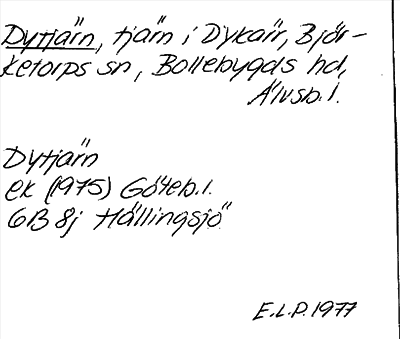 Dytjärn, tjärn i Dykärr, Björ-
ketorps sn, Bollebygds hd,
Älvsb. l.
Dytjärn
ek (1975) Göteb. l.
6B 8j Hällingsjö
E.L.P. 1977